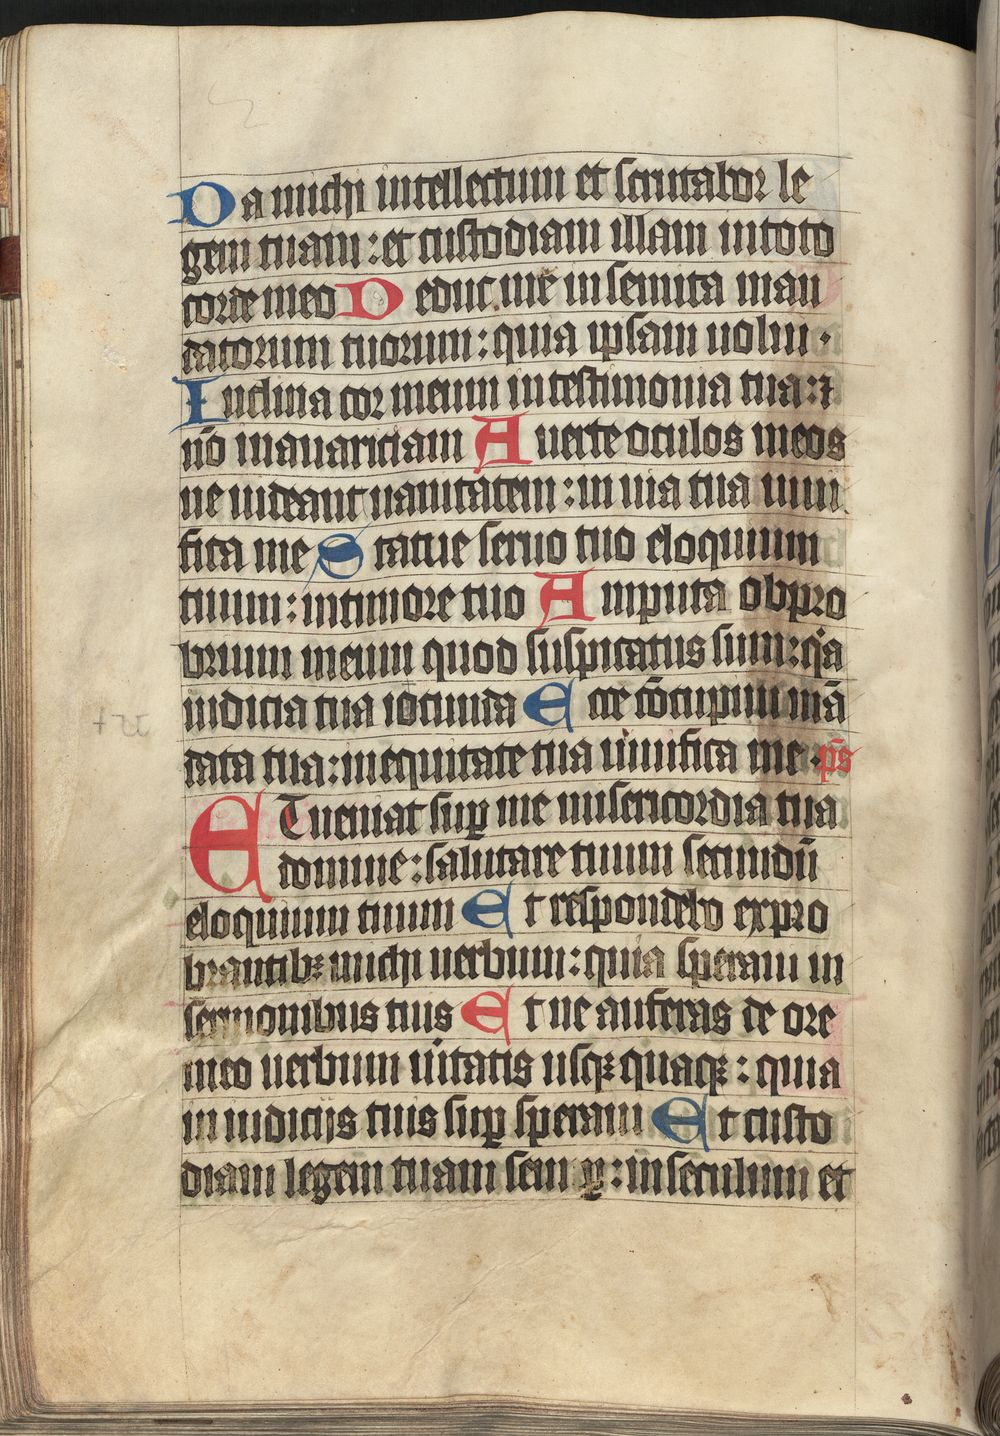 Da michi intellectum et scrutabor le
gem tuam : et custodiam illam in toto
corde meo Deduc me in semita man
datorum tuorum : quia ipsam uolui .
Inclina cor meum in testimonia tua : ⁊
nō in auariciam Auerte oculos meos
ne uideant uanitatem : in uia tua uiui
fica me Statue seruo tuo eloquium
tuum : in timore tuo Amputa obpro
brium meum quod suspicatus sum : qͥa
iudicia tua iocunda Ecce cōcupiui mā
data tua : in equitate tua uiuifica me . p̄s
ET ueniat suꝑ me misericordia tua
domine : salutare tuum secundū
eloquium tuum Et respondebo expro
brantibꝫ michi uerbum : quia speraui in
sermonibus tuis Et ne auferas de ore
meo uerbum uͥtatis usqꝫ quaqꝫ : quia
in iudicijs tuis suꝑ speraui Et custo
diam legem tuam sem ꝑ : in seculum et